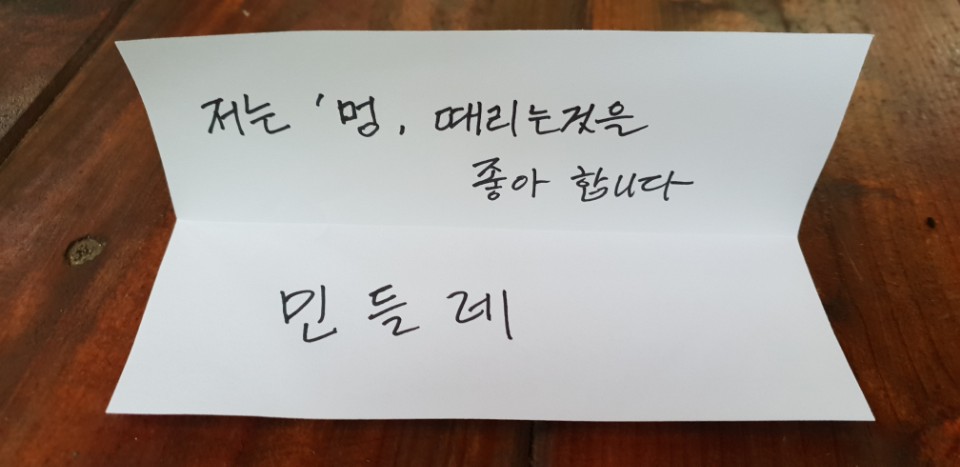 저는 '멍, 때리는것을
좋아 합니다
민들레